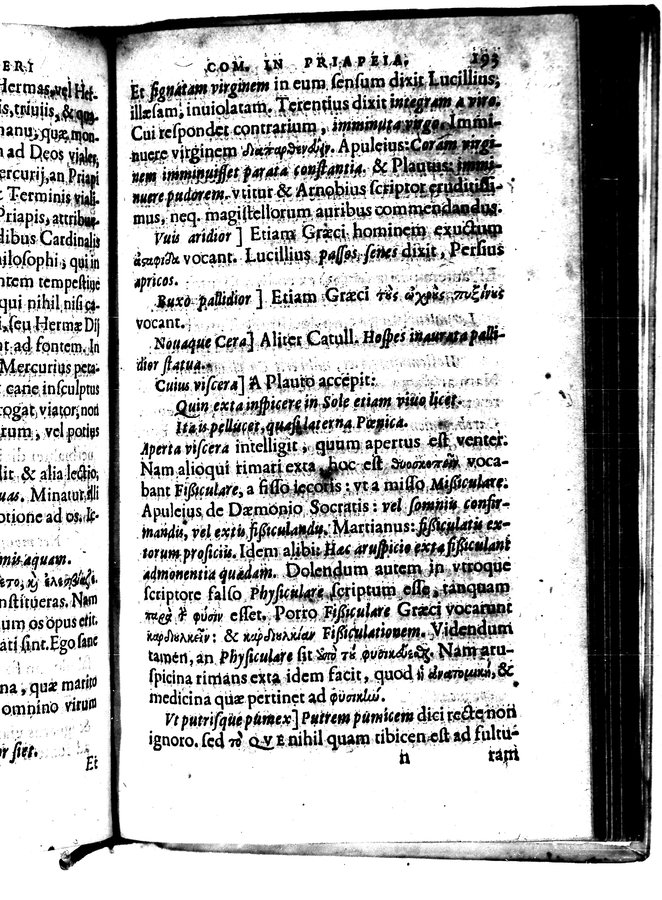 ERI
Hermas, vel Her-
is, triuiis, & qua-
manu, quæ mon-
n ad Deos viales,
ercurij, an Priapi
Terminis viali-
Priapis, attribue-
dibus Cardinalis
hilosophi; qui in
ntem tempestiue
qui nihil nisi ca-
i, seu Hermæ Dij
nt ad fontem. In
Mercurius peta-
cane insculptus
rogat viator, non
rum, vel potius
dit & alia lectio,
uas. Minatur illi
otione ad os. Ic-
nis aquam.
nstitueras. Nam
um os opus erit.
ati sint. Ego sane
na, quæ marito
omnino virum
or siet.
Et
COM. IN PRIAPEIA. 193
Et signatam virginem in eum sensum dixit Lucillius,
illæsam, inuiolatam. Terentius dixit integram a viro.
Cui respondet contrarium, imminuta virgo. Immi-
nuere virginem διαπαρθενεύειν. Apuleius: Coram virgi-
nem imminuisset parata constantia. & Plautus: immi-
nuere pudorem. vtitur & Arnobius scriptor eruditissi-
mus, neq. magistellorum auribus commendandus.
Vuis aridior] Etiam Græci hominem exuctum
ἀσαφίδα vocant. Lucillius passos senes dixit, Persius
apricos.
Buxo pallidior] Etiam Græci τοὺς ὠχροὺς πυξίνους
vocant.
Nouaque Cera] Aliter Catull. Hospes inaurata palli-
dior statua.
Cuius viscera] A Plauto accepit:
Quin exta inspicere in Sole etiam viuo licet.
Ita is pellucet, quasi laterna Pœnica.
Aperta viscera intelligit, quum apertus est venter.
Nam alioqui rimari exta, hoc est θυοσκοπεῖν voca-
bant Fissiculare, a fisso iecoris: vt a misso Missiculare.
Apuleius de Dæmonio Socratis: vel somniis confir-
mandis, vel extis fissiculandis. Martianus: fissiculatis ex-
torum prosiciis. Idem alibi: Hac aruspicio exta fissiculant
admonentia quædam. Dolendum autem in vtroque
scriptore falso Physiculare scriptum esse, tanquam
παρὰ τ̀ φύσιν esset. Porro Fissiculare Græci vocarunt
καρδιουλκεῖν: & καρδιουλκίαν Fissiculationem. Videndum
tamen, an Physiculare sit ἀπὸ τοῦ φυσικεύεσθαι. Nam aru-
spicina rimans exta idem facit, quod ἡ ἀνατομικὴ, &
medicina quæ pertinet ad φυσικὴν.
Vt putrisque pumex] Putrem pumicem dici recte non
ignoro. sed τὸ QVE nihil quam tibicen est ad fultu-
n ram